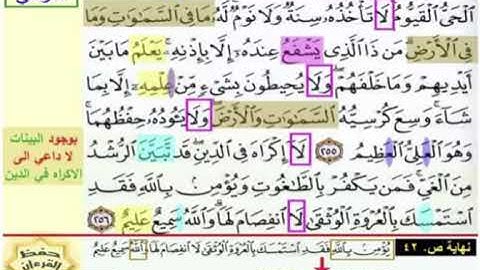 الْحَيُّ الْقَيُّومُ لَا تَأْخُذُهُ سِنَةٌ وَلَا نَوْمٌ لَهُ مَا فِي السَّمَوَاتِ وَمَا
فِي الْأَرْضِ مَن ذَا الَّذِي يَشْفَعُ عِندَهُ إِلَّا بِإِذْنِهِ يَعْلَمُ مَا بَيْنَ
أَيْدِيهِمْ وَمَا خَلْفَهُمْ وَلَا يُحِيطُونَ بِشَيْءٍ مِّنْ عِلْمِهِ إِلَّا بِمَا
شَاءَ وَسِعَ كُرْسِيُّهُ السَّمَوَاتِ وَالْأَرْضَ وَلَا يَئُودُهُ حِفْظُهُمَا
وَهُوَ الْعَلِيُّ الْعَظِيمُ ٢٥٥ لَا إِكْرَاهَ فِي الدِّينِ قَد تَّبَيَّنَ الرُّشْدُ
مِنَ الْغَيِّ فَمَن يَكْفُرْ بِالطَّاغُوتِ وَيُؤْمِن بِاللَّهِ فَقَدِ
اسْتَمْسَكَ بِالْعُرْوَةِ الْوُثْقَى لَا انفِصَامَ لَهَا وَاللَّهُ سَمِيعٌ عَلِيمٌ ٢٥٦
بوجود البينات
لا داعي الى
الاكراه في الدين
نهاية ص. ٤٢
يُؤْمِن بِاللَّهِ فَقَدِ اسْتَمْسَكَ بِالْعُرْوَةِ الْوُثْقَى لَا انفِصَامَ لَهَا وَاللَّهُ سَمِيعٌ عَلِيمٌ
حفظ
القرءان